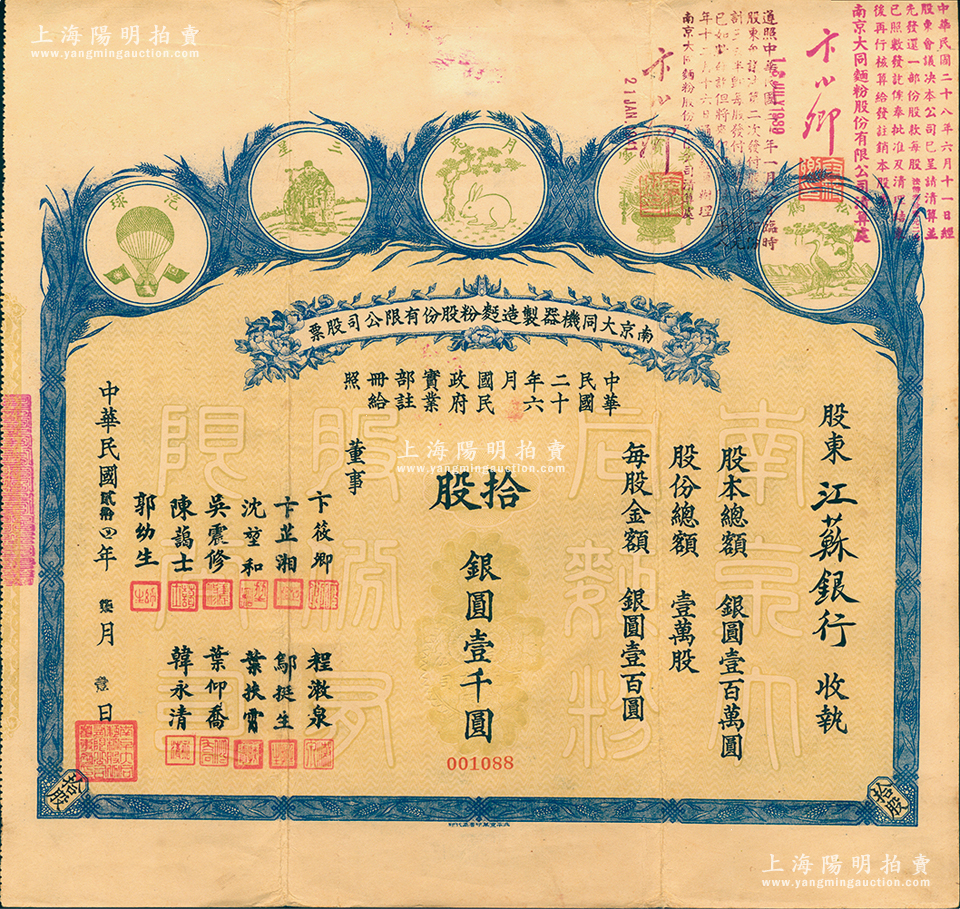 上海陽明拍賣
www.yangmingauction.com
中華民國二十八年六月十一日經
股東會議決本公司已呈請清算並
先發還一部份股款每股
已照數發訖俟奉批准及清理結束
後再行核算給發註銷本股票
南京大同麵粉股份有限公司清算處
卞小卿
12 JULY 1939
遵照中華民國
年一月
臨時
股東
第二次發付
南京大同麵粉股份
21 JAN
松鶴
月兔
三星
汽球
南京大同機器製造麪粉股份有限公司股票
中華民國二十六年 月
國民政府實業部註給冊照
股東 江蘇銀行 收執
股本總額 銀圓壹百萬圓
股份總額 壹萬股
每股金額 銀圓壹百圓
拾股
銀圓壹千圓
董事
卞筱卿
卞芷湘
沈堃和
吳震修
陳藹士
郭幼生
程漱泉
鄔挺生
葉扶霄
葉仰喬
韓永清
中華民國貳拾四年 月壹日
001088
拾股
拾股
南京大同麪粉
股份有限公司
上海陽明拍賣
www.yangmingauction.com
上海陽明拍賣
www.yangmingauction.com